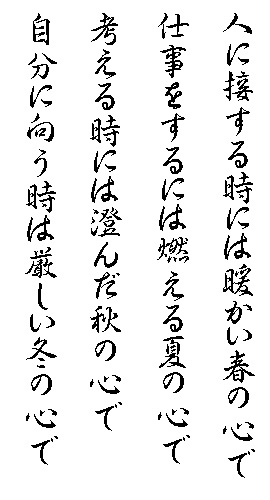 人に接する時には暖かい春の心で
仕事をするには燃える夏の心で
考える時には澄んだ秋の心で
自分に向う時は厳しい冬の心で